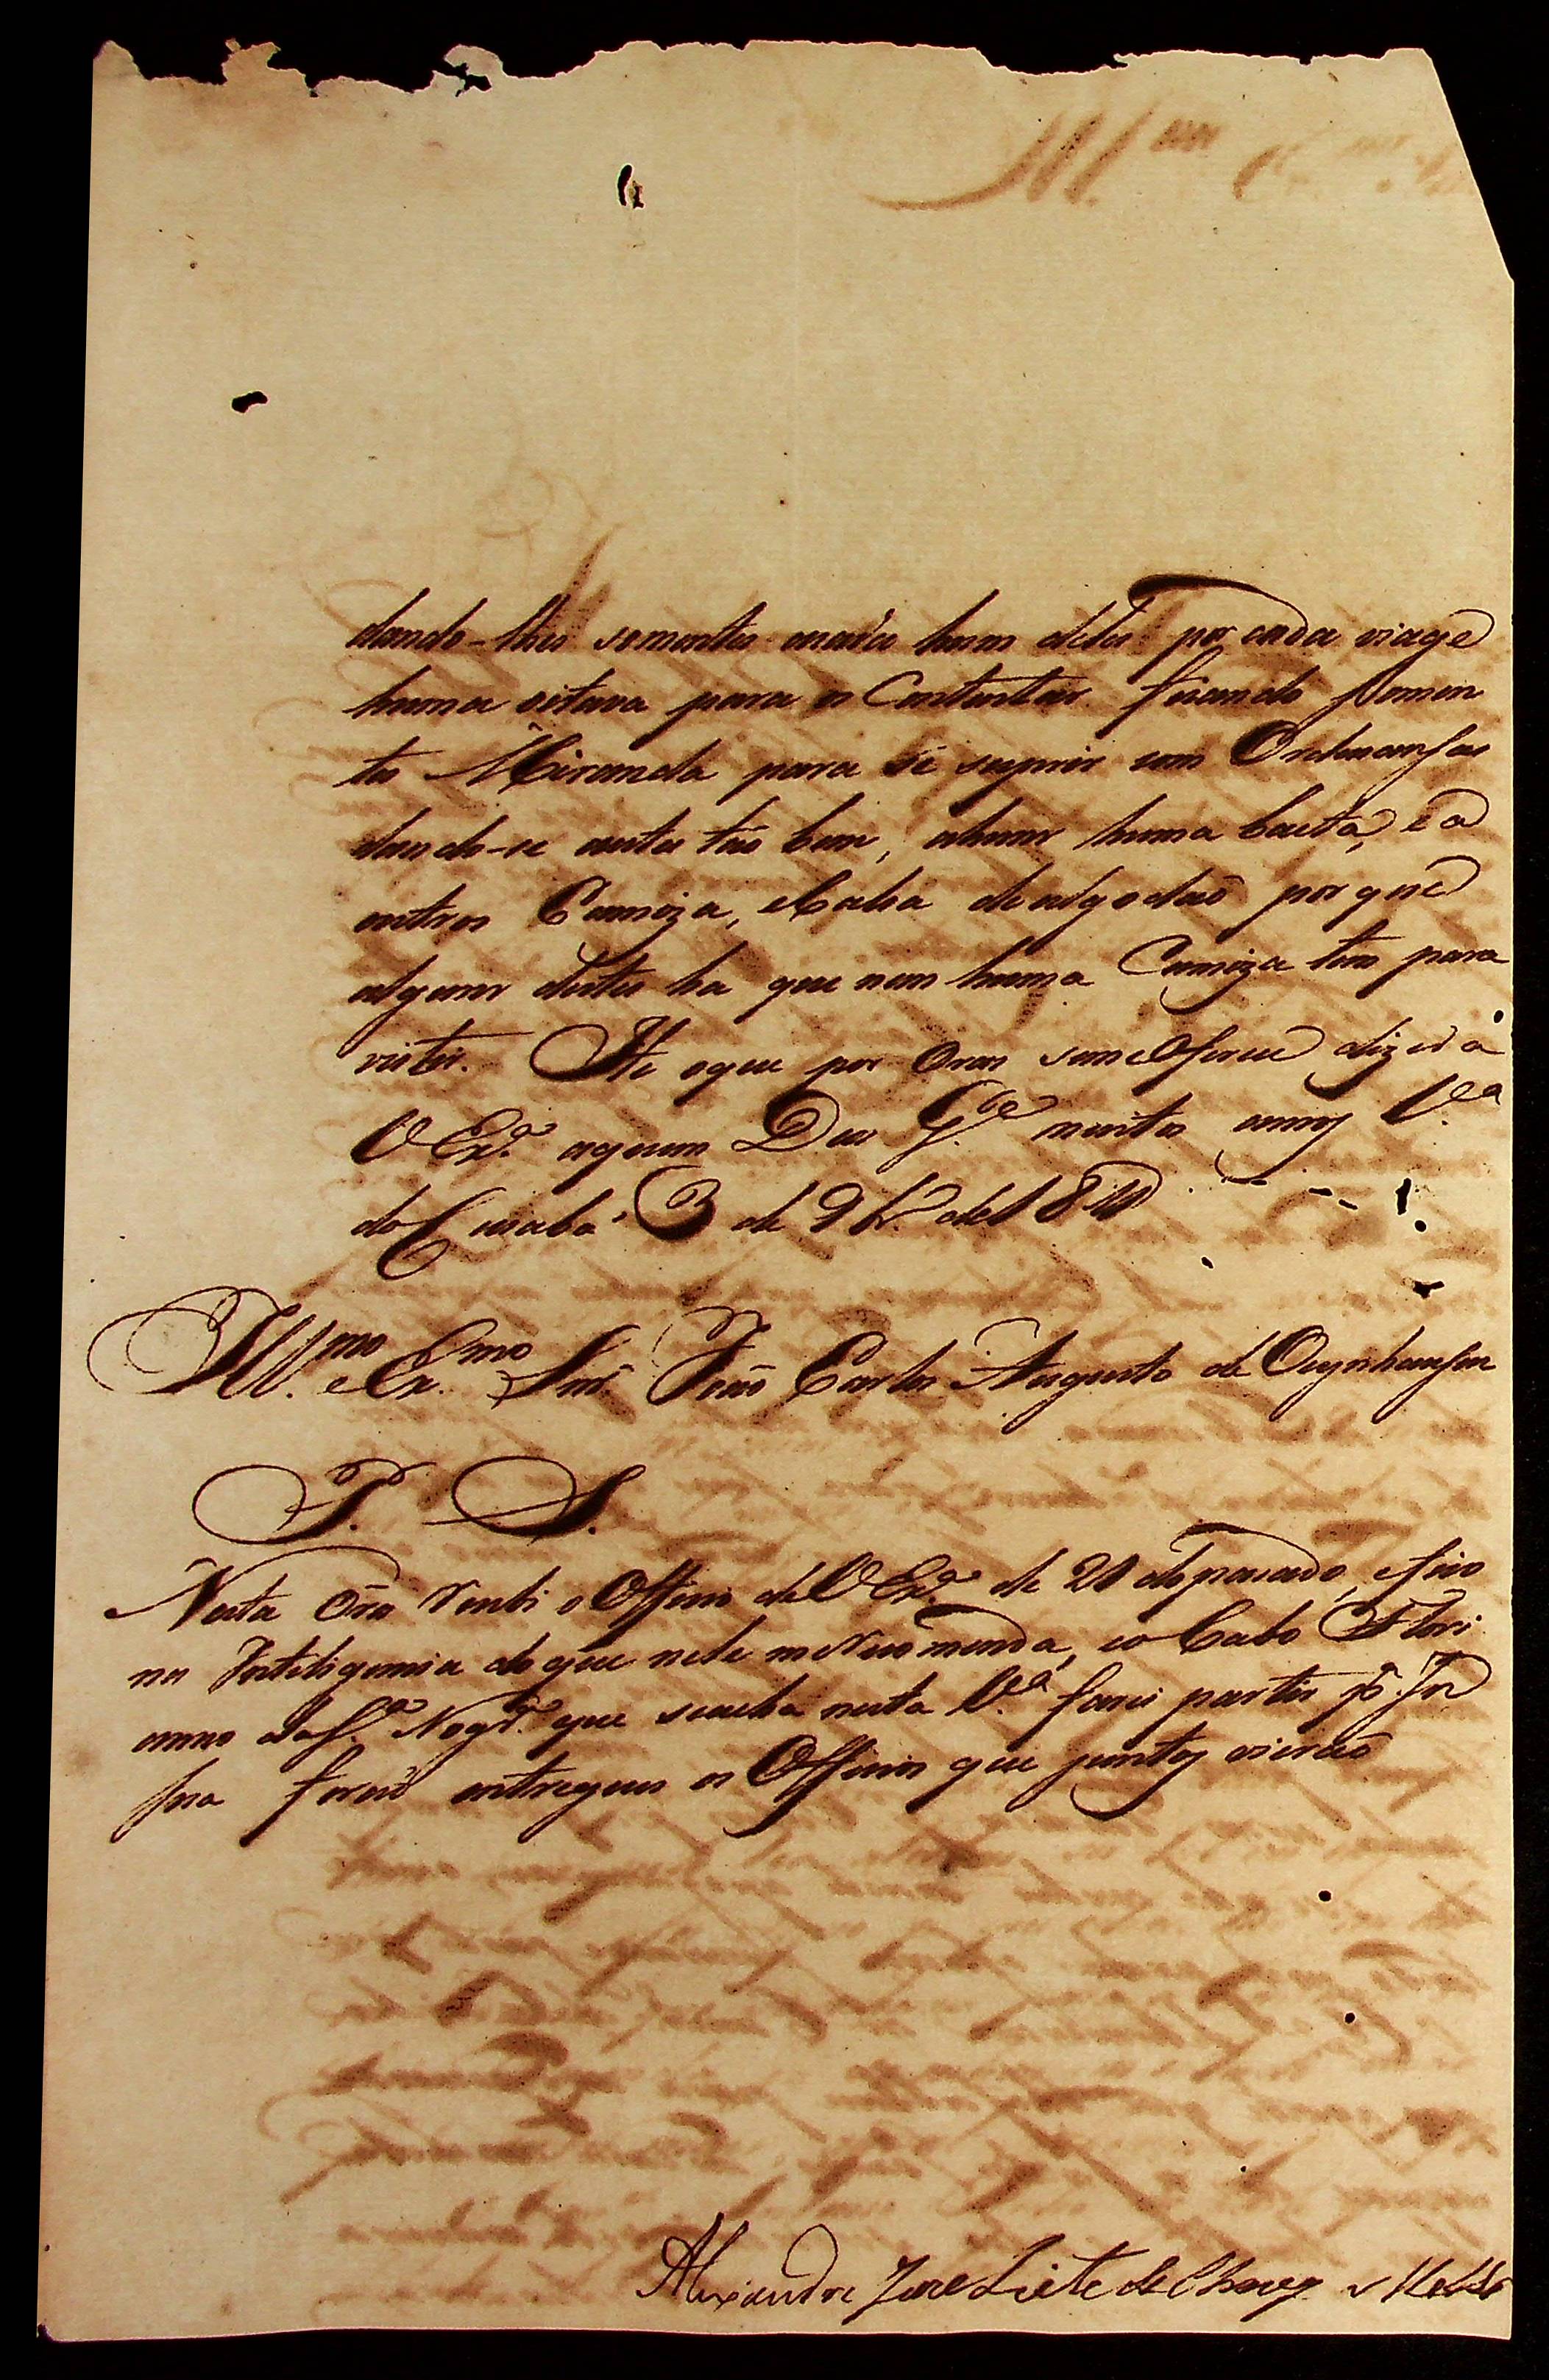 dando-lhes somentes acada hum deles por cada viage
huma oitava para os Contentar. ficando somen
te Miranda para se suprir com Ordenansas
dando-se aestes tão bem, ahuns huma baeta, e a
outros Camiza, eCalsa dealgodão por que
alguns destes ha que nem huma Camiza tem para
vistir. He oque por Oras seme Oferece dizer a
V Exª. aquem Deos Gde. muitos annos Vª.
do Cuiabá 3 de 9br.º de 1810
Illmo. eExmo. Snr. João Carlos Augusto de Oeynhausen
P. S.
Nesta Ora Recebi o Officio de V Exª. de 20 do pasado, efico
na Inteligencia do que nele me Recomenda, eo Cabo Flori
anno da Sª. Nogrª. que seacha nesta Vª. farei partir pª.
fora forão entregues os Officios que juntos vierão
Alexandre Joze Leite de Chaves e Mello